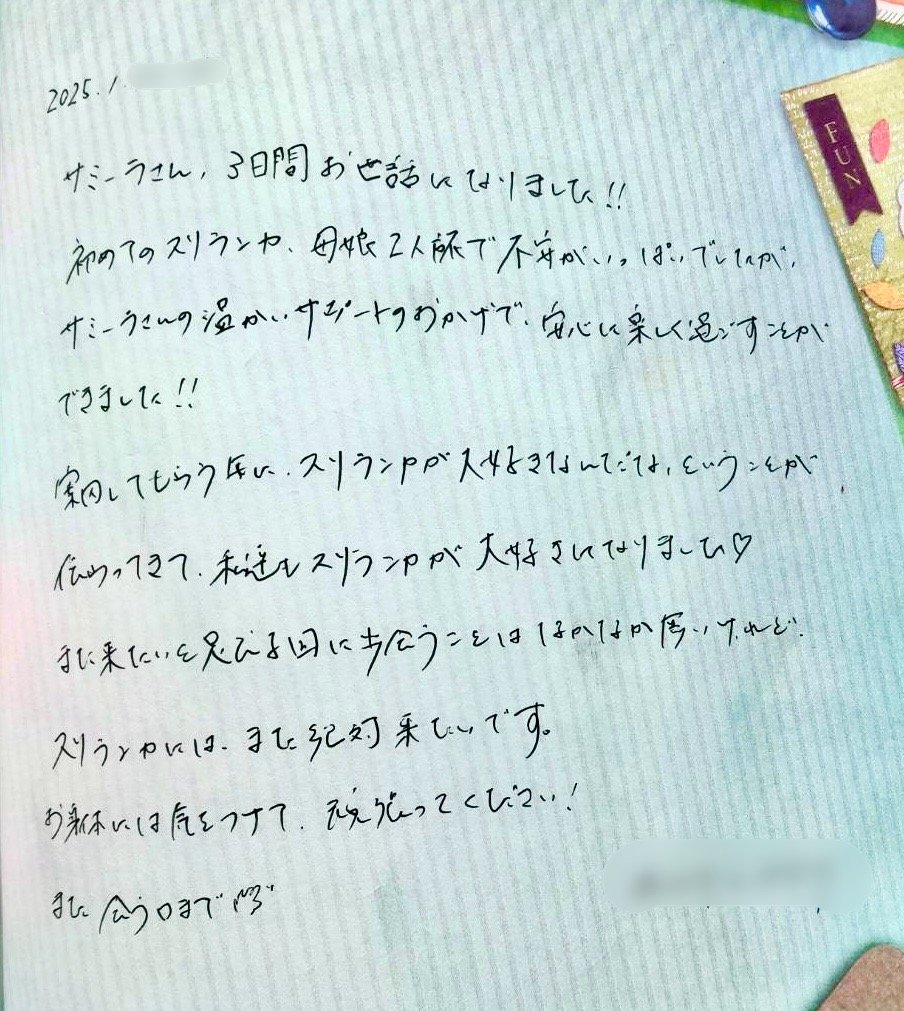 2025. 1.
サミーラさん、3日間お世話になりました!!
初めてのスリランカ、母娘2人旅で不安がいっぱいでしたが、
サミーラさんの温かいサポートのおかげで、安心に楽しく過ごすことが
できました!!
案内してもらう度に、スリランカが大好きなんだな、ということが
伝わってきて、私達もスリランカが大好きになりました♡
また来たいと思える国に出会うことはなかなか無いけれど、
スリランカには、また絶対来たいです。
お身体には気をつけて、頑張ってください!
また会う日まで
FUN